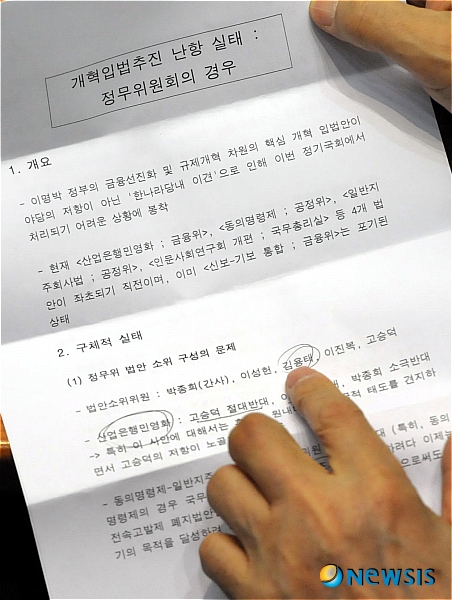 개혁입법추진 난항 실태 :
정무위원회의 경우
1. 개요
- 이명박 정부의 금융선진화 및 규제개혁 차원의 핵심 개혁 입법안이
야당의 저항이 아닌 '한나라당내 이견'으로 인해 이번 정기국회에서
처리되기 어려운 상황에 봉착
- 현재 <산업은행민영화 ; 금융위>, <동의명령제 ; 공정위>, <일반지
주회사법 ; 공정위>, <인문사회연구회 개편 ; 국무총리실> 등 4개 법
안이 좌초되기 직전이며, 이미 <신보-기보 통합 ; 금융위>는 포기된
상태
2. 구체적 실태
(1) 정무위 법안 소위 구성의 문제
- 법안소위위원 : 박종희(간사), 이성헌, 김용태, 이진복, 고승덕
- 산업은행민영화 : 고승덕 절대반대, 박종희 소극반대
-> 특히 이 사안에 대해서는 태도를 견지하
면서 고승덕의 저항이 노골 (특히, 동의
- 동의명령제-일반지주 이제
명령제의 경우 국무
전속고발제 폐지법안
기의 목적을 달성하려
newsis